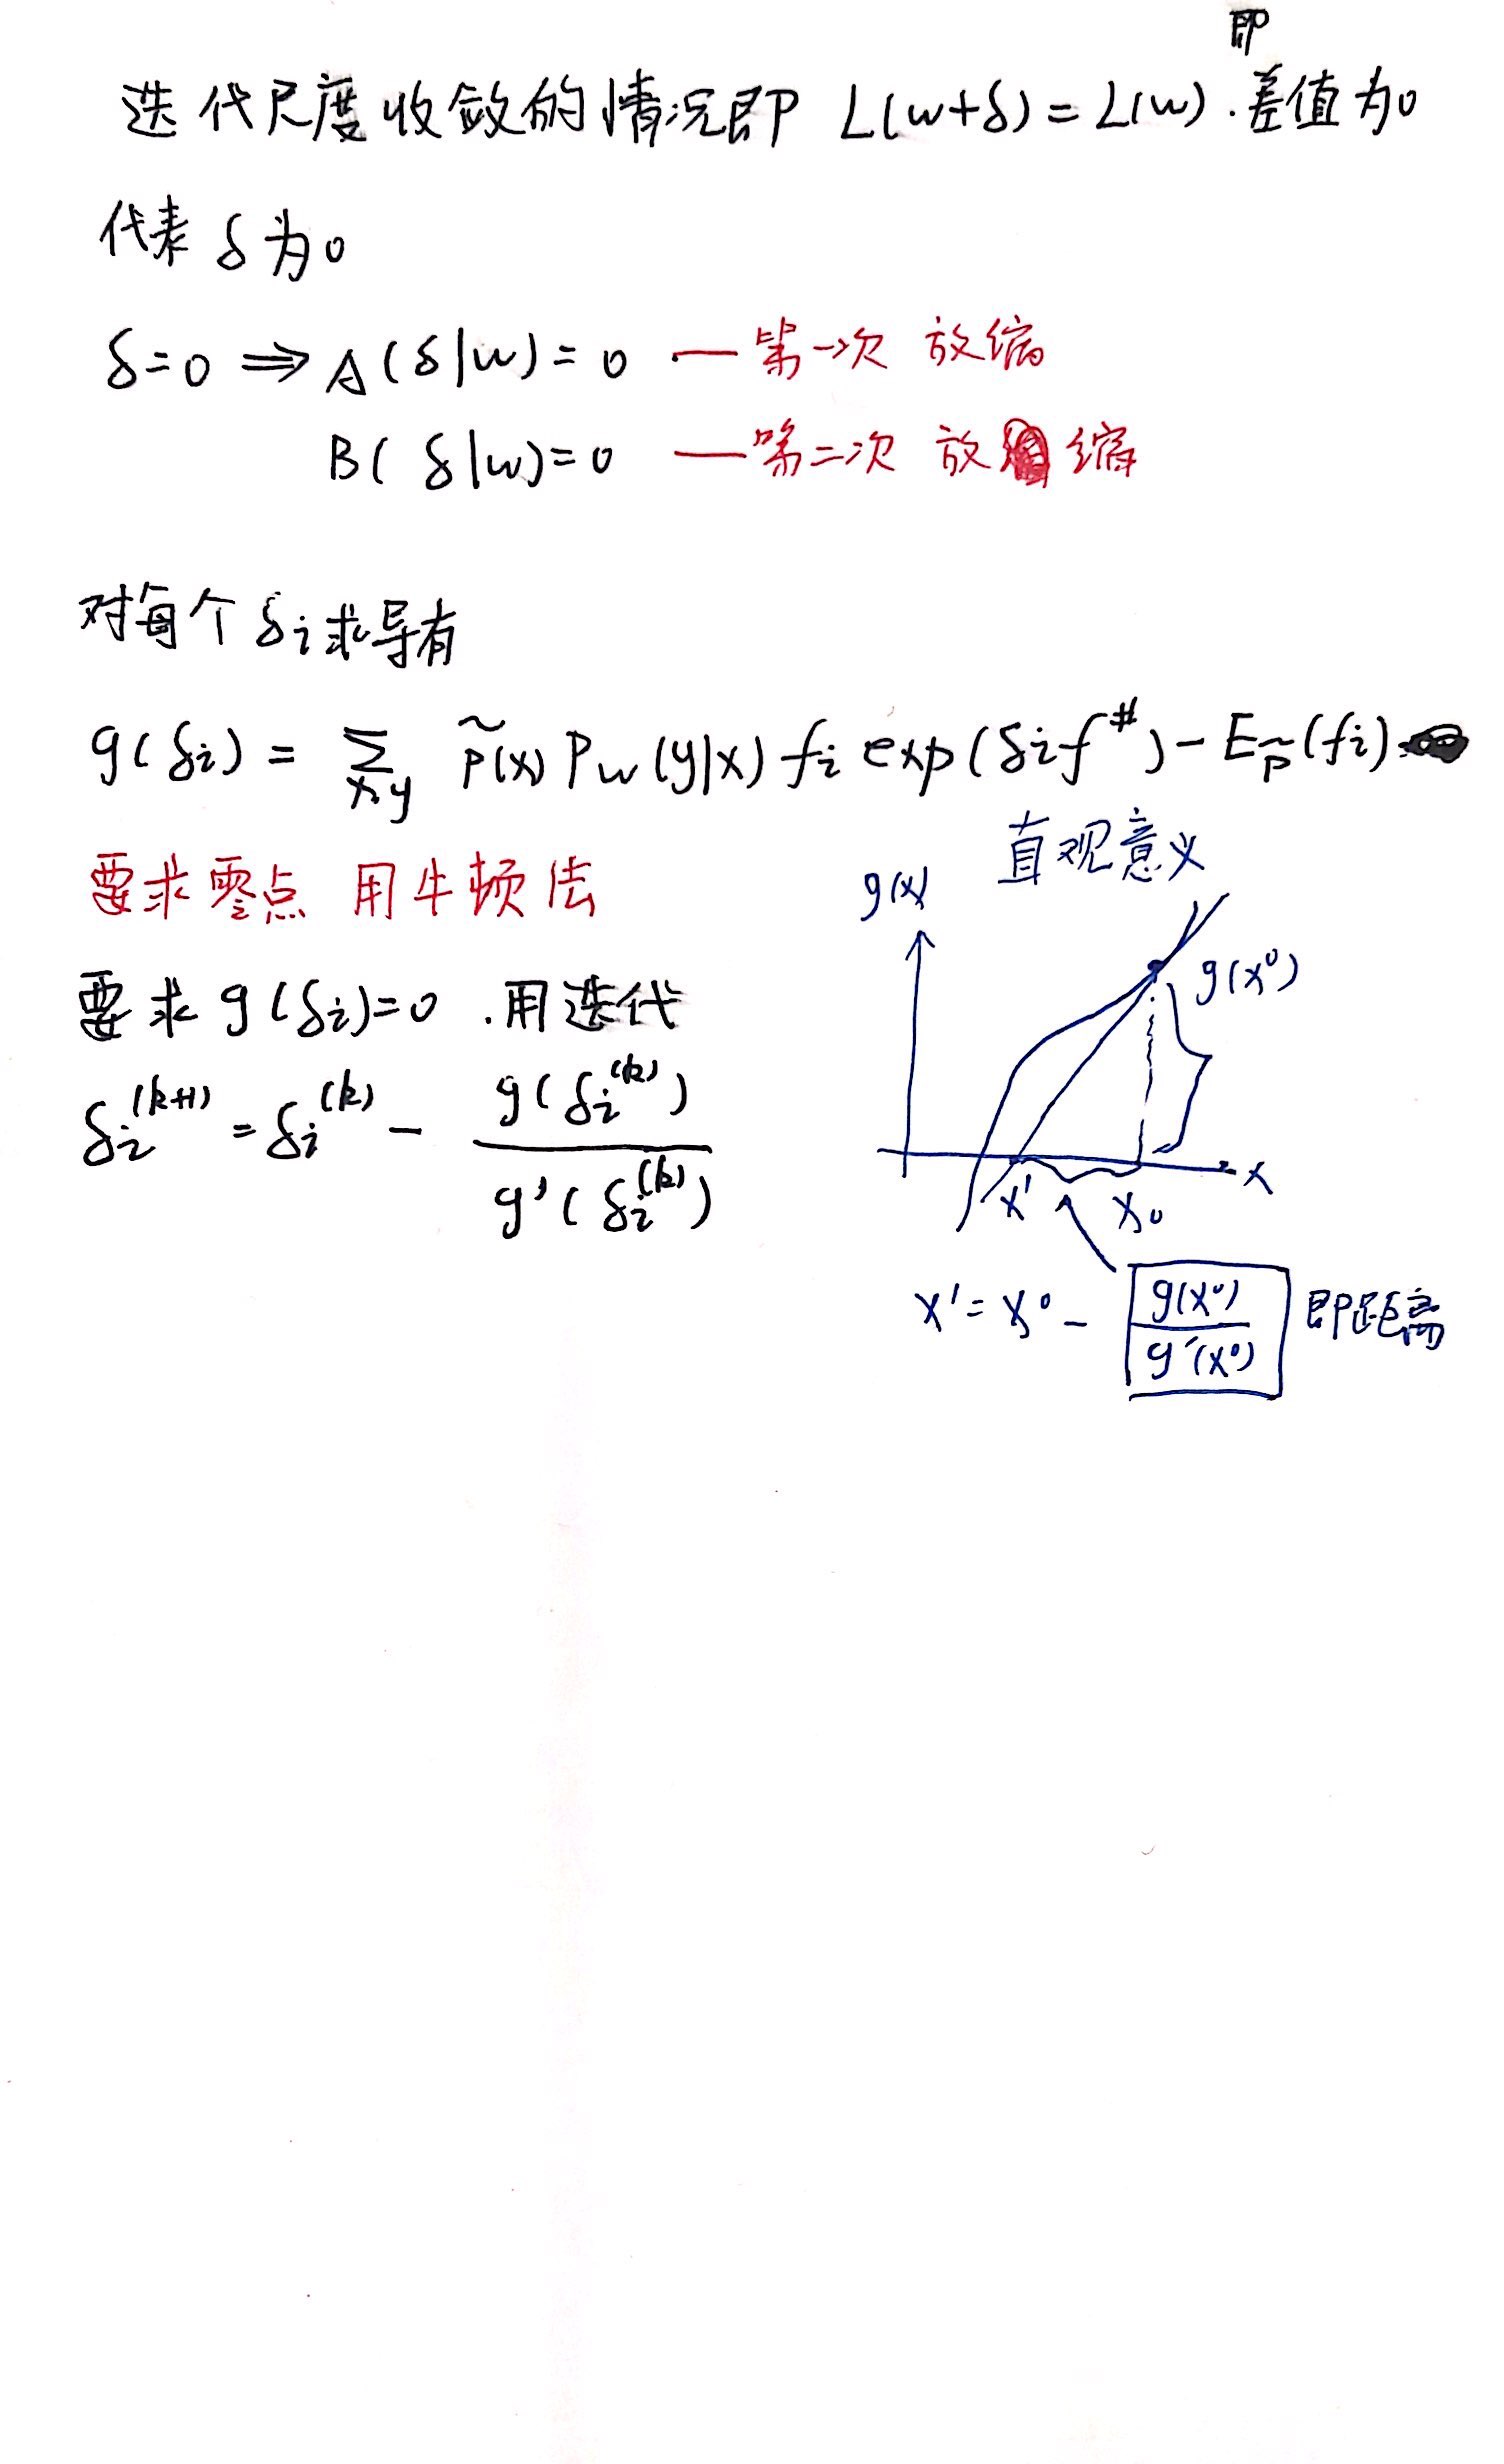 即
迭代尺度收敛的情况即 L(w+δ)=L(w).差值为0
代表 δ 为0
δ=0 ⇒ A(δ|w)=0 —第一次 放缩
B(δ|w)=0 —第二次 放缩
对每个 δi 求导有
g(δi) = Σx,y p̃(x) Pw(y|x) fi exp(δi f^#) - E_p̃(fi)
直观意义
要求零点 用牛顿法
g(x)
g(x⁰)
要求 g(δi)=0 .用迭代
δi^(k+1) = δi^(k) - g(δi^(k)) / g'(δi^(k))
x' x₀ x
x' = x⁰ - g(x⁰) / g'(x⁰) 即距离